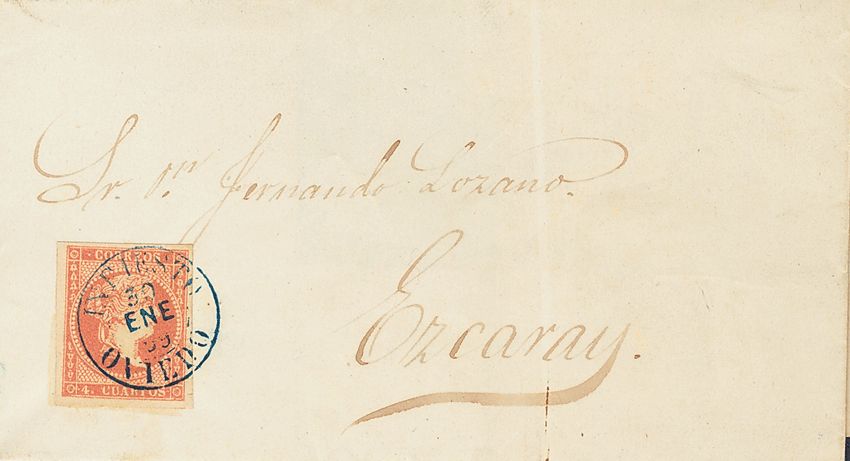 Sr. Dn Fernando Lozano.
Ezcaray.
CORREOS
INFIESTO
30
ENE
OVIEDO
4. CUARTOS